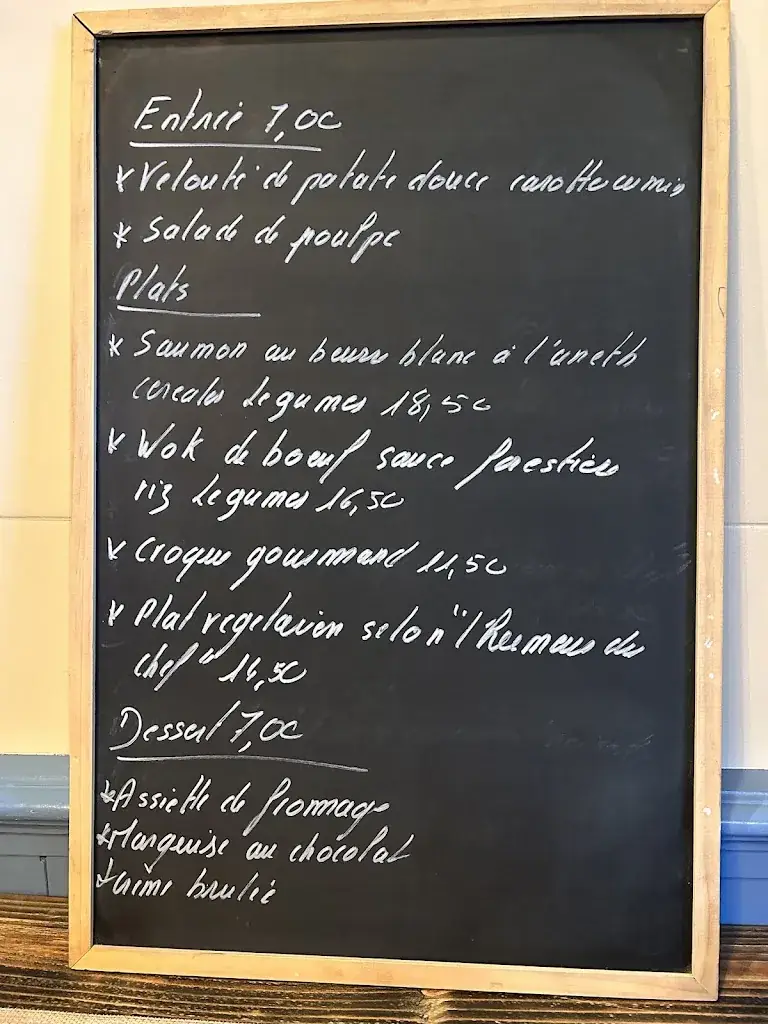 Entrée 7,00
* Velouté de patate douce carotte cumin
* Salade de poulpe
Plats
* Saumon au beurre blanc à l'aneth
céréales légumes 18,50
* Wok de boeuf sauce forestière
riz légumes 16,50
* Croque gourmand 11,50
* Plat végétarien selon "l'Humeur du
chef" 16,50
Dessert 7,00
* Assiette de fromage
* Marquise au chocolat
* Crème brulée